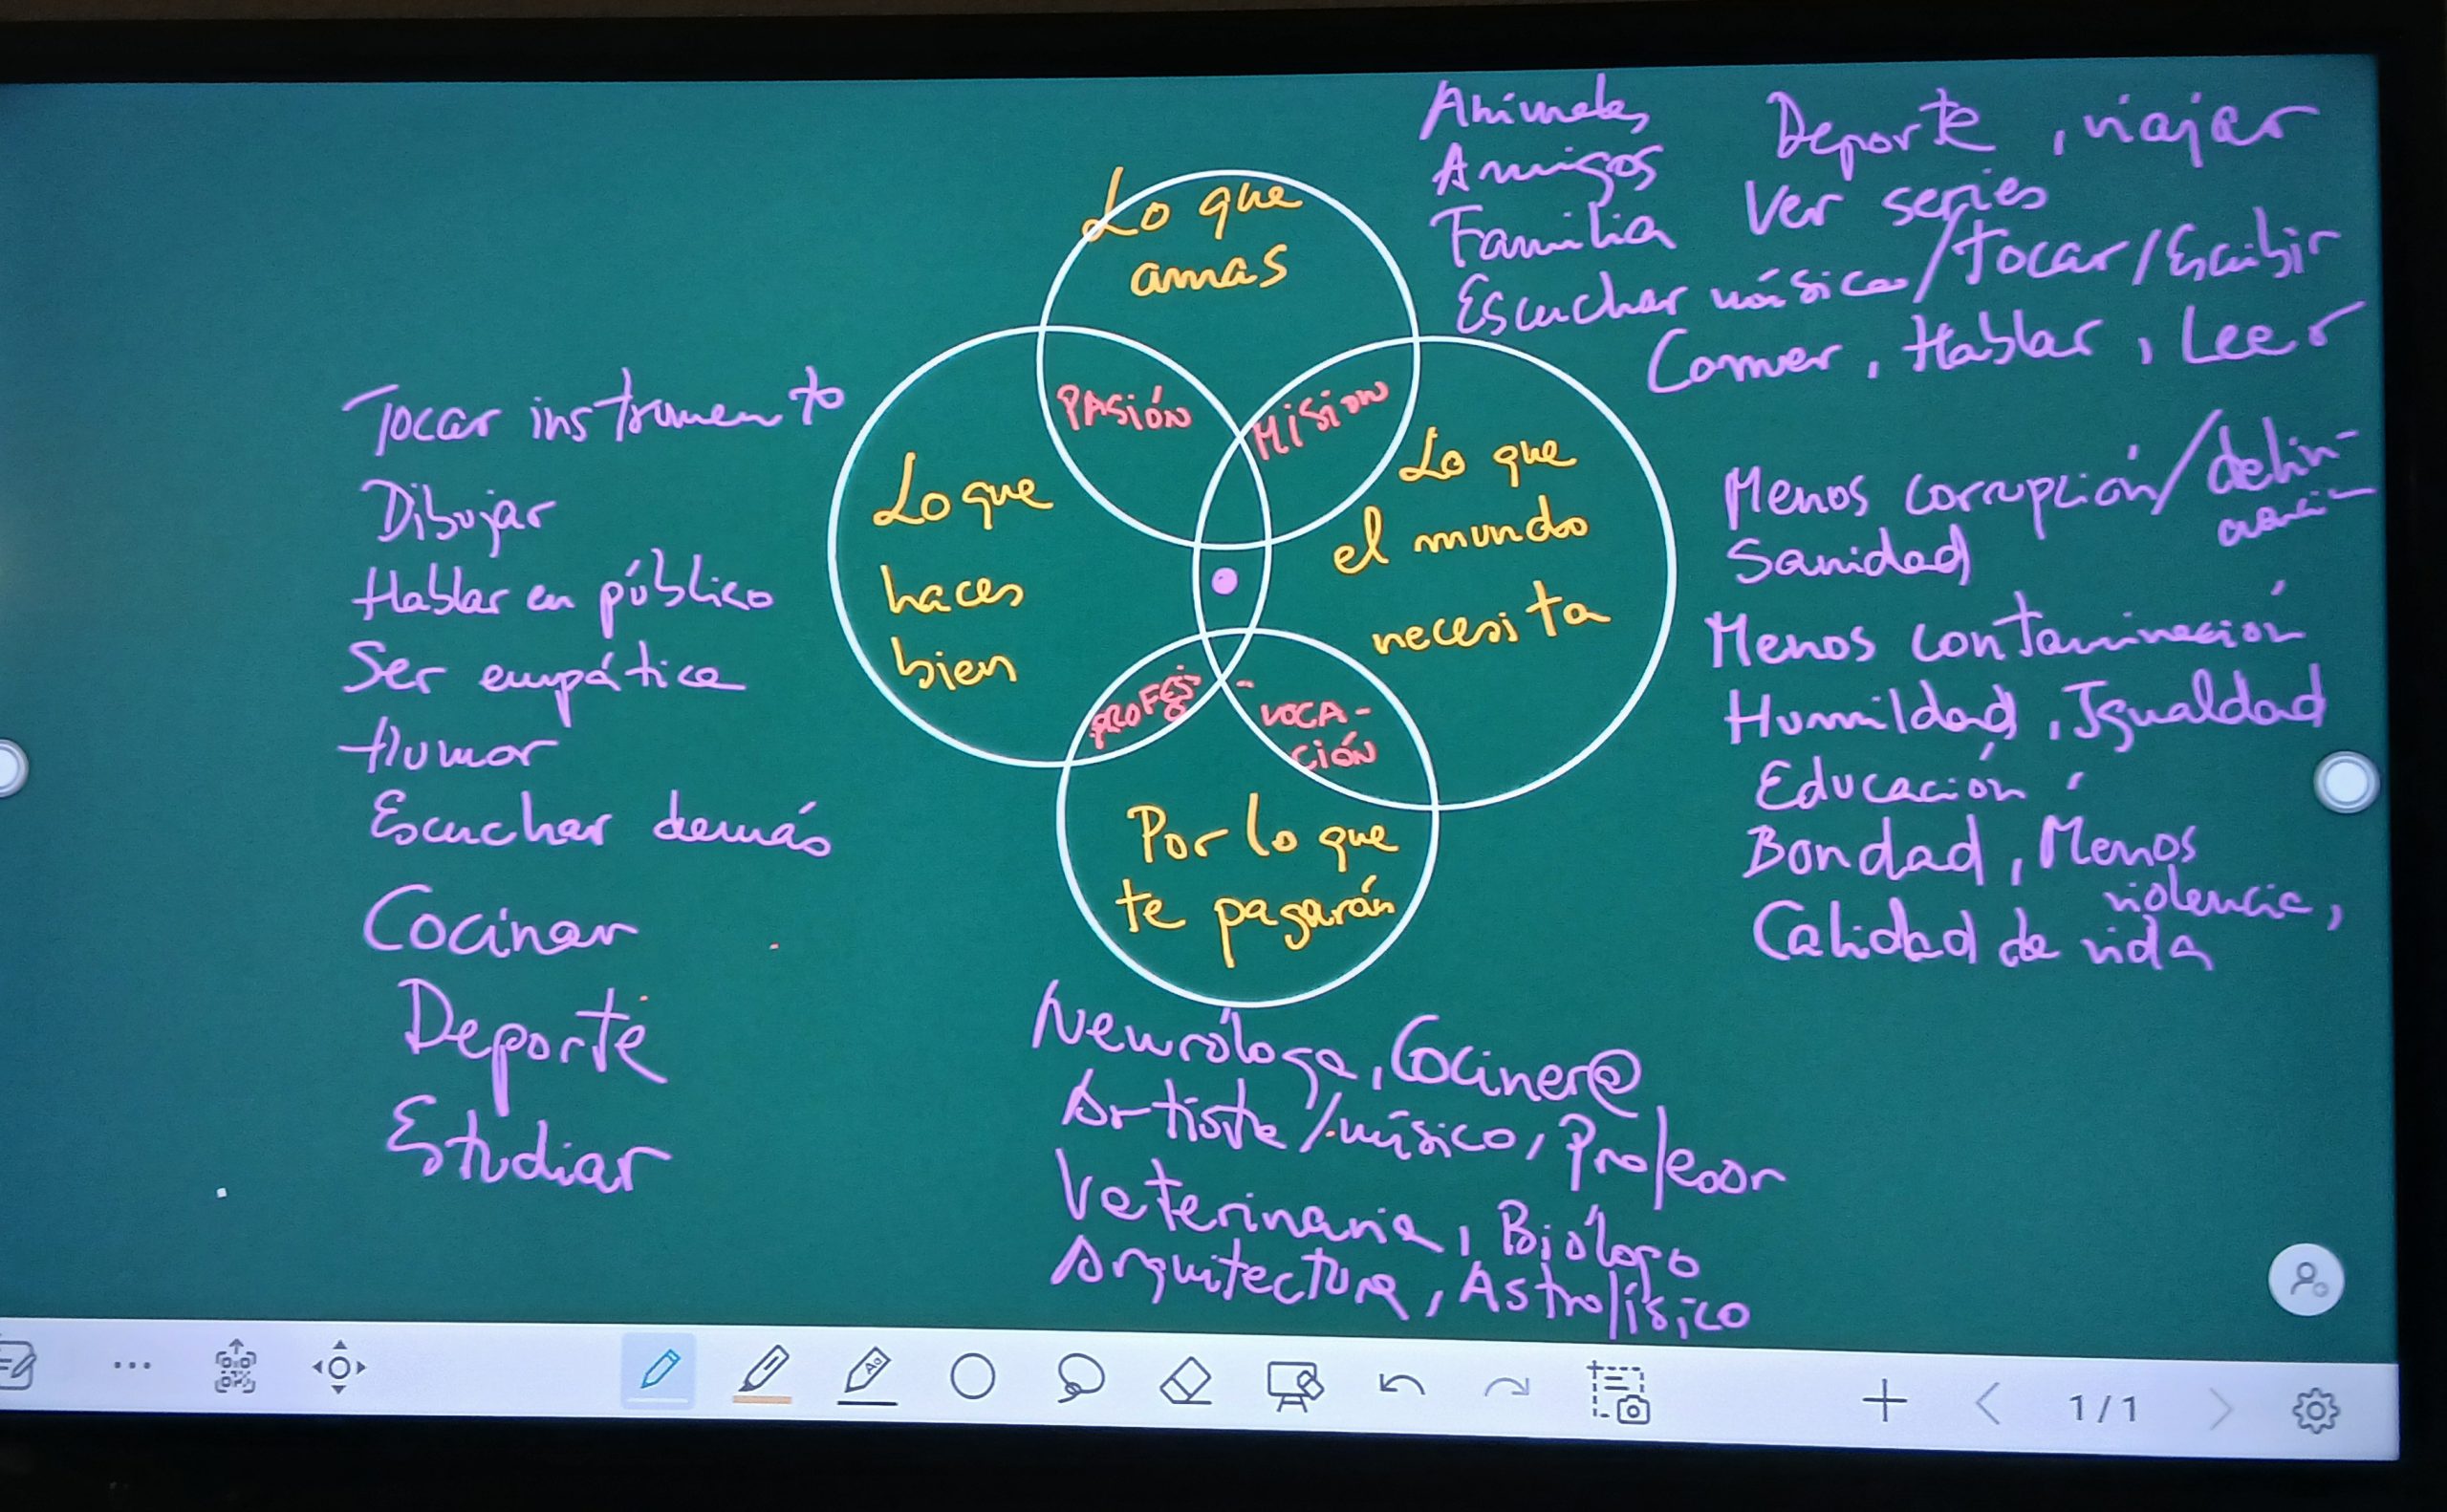 Lo que
amas
PASIÓN
MISION
Lo que
haces
bien
Lo que
el mundo
necesita
PROFES-
VOCA-
CIÓN
Por lo que
te pagarán
Animales
Amigos
Familia
Deporte, viajar
Ver series
Escuchar música/Tocar/Escribir
Comer, Hablar, Leer
Tocar instrumento
Dibujar
Hablar en público
Ser empática
Humor
Escuchar demás
Cocinar
Deporte
Estudiar
Menos corrupción/delin-
cuencia
Sanidad
Menos contaminación
Humildad, Igualdad
Educación,
Bondad, Menos
violencia,
Calidad de vida
Neuróloga, Cociner@
Artista/músico, Profesor
Veterinaria, Biólogo
Arquitectura, Astrofísico
1/1